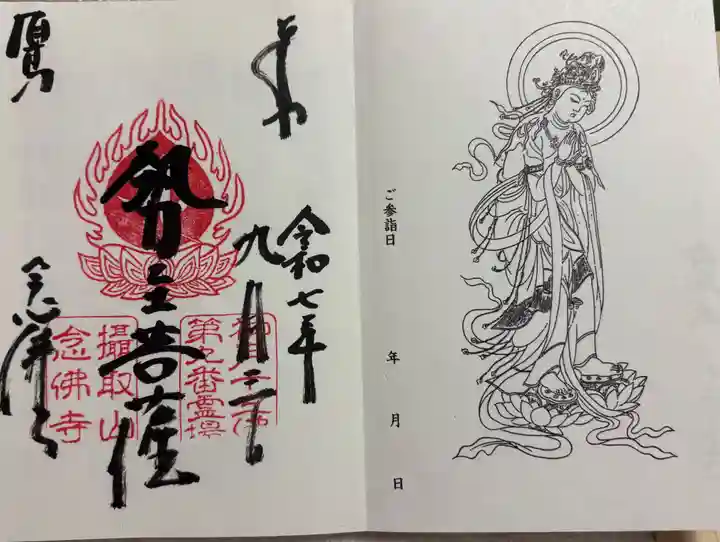 ご参詣日
年 月 日
奉拝
令和七年
九月
勢至菩薩
念佛寺
第九番霊場
攝取山
念佛寺